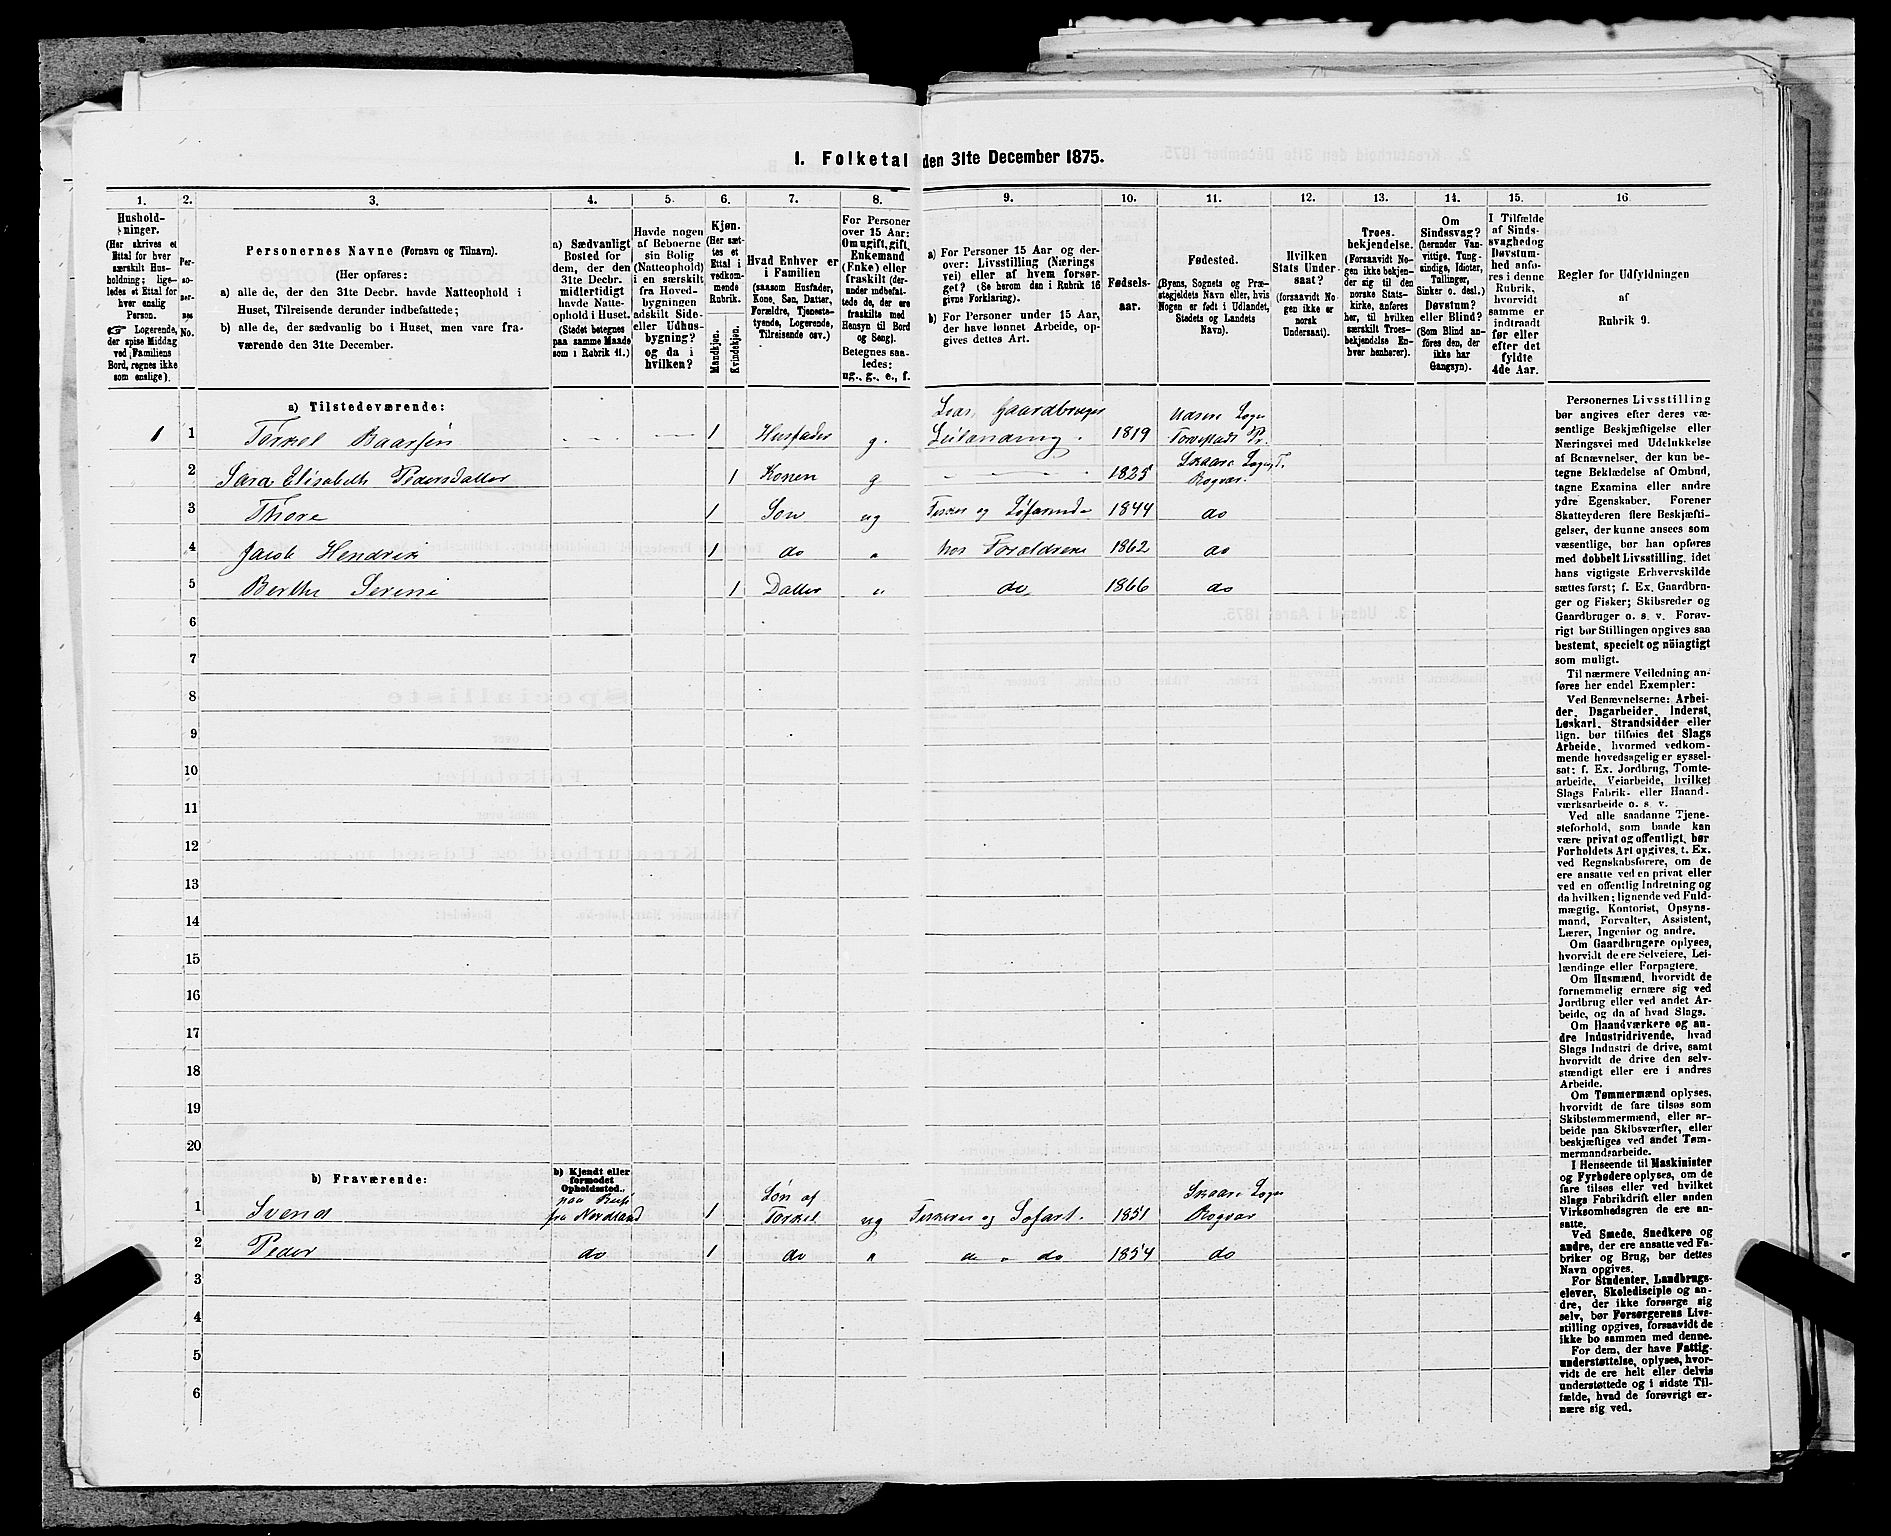 I. Folketal den 31te December 1875.
1.
2.
3.
4.
5.
6.
7.
8.
9.
10.
11.
12.
13.
14.
15.
16
Hushold-
ninger.
(Her skrives et
Ettal for hver
særskilt Hus-
holdning; lige-
ledes et Ettal for
hver enslig
Person.
☞ Logerende,
der spise Middag
ved Familiens
Bord, regnes ikke
som enslige).
Per-
so-
ner-
nes
No.
Personernes Navne (Fornavn og Tilnavn).
(Her opføres:
a) alle de, der den 31te Decbr. havde Natteophold i
Huset, Tilreisende derunder indbefattede;
b) alle de, der sædvanlig bo i Huset, men vare fra-
værende den 31te December.
a) Sædvanligt
Bosted for
dem, der den
31te Decbr.
midlertidigt
havde Natte-
ophold i Huset.
(Stedet betegnes
paa samme Maade
som i Rubrik 11.)
Havde nogen
af Beboerne
sin Bolig
(Natteophold)
i en særskilt
fra Hoved-
bygningen
adskilt Side-
eller Udhus-
bygning?
og da i
hvilken?
Kjøn.
(Her sæt-
tes et
Ettal i
vedkom-
mende
Rubrik.
Mandkjøn.
Kvindekjøn.
Hvad Enhver er
i Familien
(saasom Husfader,
Kone, Søn, Datter,
Forældre, Tjeneste-
tyende, Logerende,
Tilreisende osv.)
For Personer
over 15 Aar:
Om ugift, gift,
Enkemand
(Enke) eller
fraskilt (der-
under indbefat-
tede de, der ere
fraskilte med
Hensyn til Bord
og Seng).
Betegnes saa-
ledes:
ug., g., e., f.
a) For Personer 15 Aar og der-
over: Livsstilling (Nærings
vei) eller af hvem forsør-
get? (Se herom den i Rubrik 16
givne Forklaring).
b) For Personer under 15 Aar,
der have lønnet Arbeide, op-
gives dettes Art.
Fødsels-
aar.
Fødested.
(Byens, Sognets og Præ-
stegjeldets Navn eller, hvis
Nogen er født i Udlandet,
Stedets og Landets
Navn).
Hvilken
Stats Under-
saat?
(forsaavidt No-
gen ikke er
norsk
Undersaat).
Troes-
bekjendelse.
(Forsaavidt No-
gen ikke bekjen-
der sig til den
norske Stats-
kirke, anføres
her, til hvilken
særskilt Troes-
bekjendelse En-
hver henhører).
Om
Sindssvag?
(herunder Van-
vittige, Tung-
sindige, Idioter,
Tullinger,
Sinker o. desl.)
Døvstum?
eller Blind?
(Som Blind an-
føres den, der
ikke har
Gangsyn).
I Tilfælde
af Sinds-
svaghed og
Døvstum-
hed anfø-
res i denne
Rubrik,
hvorvidt
samme er
indtraadt
før eller
efter det
fyldte
4de Aar.
Regler for Udfyldningen
af
Rubrik 9.
a) Tilstedeværende:
1 1 Torkel Baarsen 1 Husfader g. Gaardbruger 1819
2 Sara Elisabeth Pedersdatter 1 Konen g 1825 Skaare Sogn
3 Thore 1 Søn ug 1844 do
4 Jacob Hendrik 1 do " hos Forældrene 1862 do
5 Berthe Serine 1 Datter " do 1866 do
6
7
8
9
10
11
12
13
14
15
16
17
18
19
20
b) Fraværende:
b) Kjendt eller
formodet
Opholdssted.
1 Svend fra Nordland 1 Søn af Torkel ug Fiskeri og Søfart. 1851 Skaare Sogn
2 Peder do 1 do " do " do 1854 do
3
4
5
6
Personernes Livsstilling
bør angives efter deres væ-
sentlige Beskjæftigelse eller
Næringsvei med Udelukkelse
af Benævnelser, der kun be-
tegne Beklædelse af Ombud,
tagne Examina eller andre
ydre Egenskaber. Forener
Skatteyderen flere Beskjæfti-
gelser, der kunne ansees som
væsentlige, bør han opføres
med dobbelt Livsstilling, idet
hans vigtigste Erhvervskilde
sættes først; f. Ex. Gaardbru-
ger og Fisker; Skibsreder og
Gaardbruger o. s. v. Forøv-
rigt bør Stillingen opgives saa
bestemt, specielt og nøiagtigt
som muligt.
Til nærmere Veiledning an-
føres her endel Exempler:
Ved Benævnelserne: Arbei-
der, Dagarbeider, Inderst,
Løskarl, Strandsidder eller
lign. bør tilføies det Slags
Arbeide, hvormed vedkom-
mende hovedsagelig er syssel-
sat; f. Ex. Jordbrug, Tomte-
arbeide, Veiarbeide, hvilket
Slags Fabrik- eller Haand-
værksarbeide o. s. v.
Ved alle saadanne Tjene-
steforhold, som baade kan
være privat og offentligt, bør
Forholdets Art opgives, t. Ex.
ved Regnskabsførere, om de
ere ansatte ved en privat eller
ved en offentlig Indretning og
da hvilken; lignende ved Fuld-
mægtig, Kontorist, Opsyns-
mand, Forvalter, Assistent,
Lærer, Ingeniør og andre.
Om Gaardbrugere oplyses,
hvorvidt de ere Selveiere, Lei-
lændinge eller Forpagtere.
Om Husmænd, hvorvidt de
fornemmelig ernære sig ved
Jordbrug eller ved andet Ar-
beide, og da af hvad Slags.
Om Haandværkere og an-
dre Industridrivende, hvad
Slags Industri de drive, samt
hvorvidt de drive den selv-
stændigt eller ere i andres
Arbeide.
Om Tømmermænd oplyses,
hvorvidt de fare tilsøs som
Skibstømmermænd, eller ar-
beide paa Skibsværfter, eller
beskjæftiges ved andet Tøm-
mermandsarbeide.
I Henseende til Maskinister
og Fyrbødere oplyses, om de
fare tilsøs eller ved hvilket
Slags Fabrikdrift eller anden
Virksomhedsgren de ere an-
satte.
Ved Smede, Snedkere og
andre, der ere ansatte ved Fa-
briker og Brug, bør dettes
Navn opgives.
For Studenter, Landbrugs-
elever, Skoledisciple og an-
dre, der ikke forsørge sig
selv, bør Forsørgerens Live-
stilling opgives, forsaavidt de
ikke bo sammen med denne.
For dem, der have Fattig-
understøttelse, oplyses, hvor-
vidt de ere helt eller delvis
understøttede og i sidste Til-
fælde, hvad de forøvrigt er-
nære sig ved.